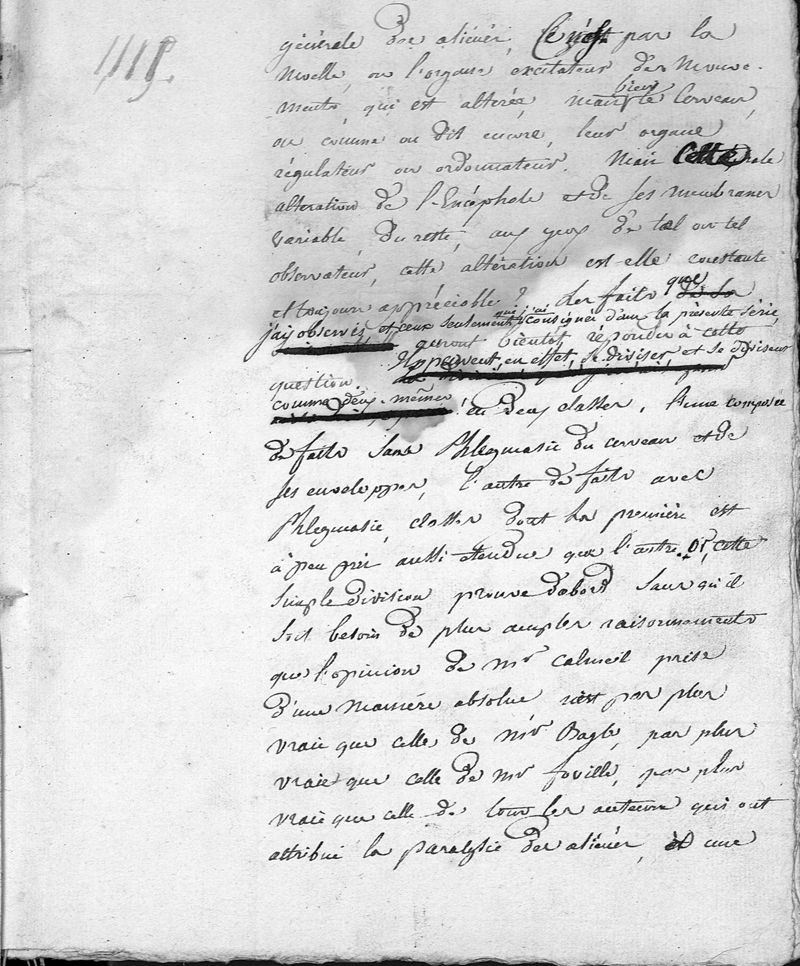 1115.
générale des aliénés, Ce n'est pas la
Moelle, ou l'organe excitateur des Mouve-
ments qui est altérée, mais bien le Cerveau,
ou comme on dit encore, leur organe
régulateur ou ordonnateur. Mais Cette
altération de l'Encéphale et de ses membranes
variable, du reste, aux yeux de tel ou tel
observateur, cette altération est-elle constante
et toujours appréciable ? Les faits que
j'ai observés, et ceux seulement que j'ai consignés dans la présente série,
auront bientôt répondu à cette
question. Ils peuvent, en effet, se diviser et se divisent
comme d'eux-mêmes en deux classes, l'une composée
de faits sans Phlegmasie du cerveau et de
ses enveloppes, l'autre de faits avec
Phlegmasie, classes dont la première est
à peu près aussi étendue que l'autre. Or, cette
simple division prouve d'abord sans qu'il
soit besoin de plus amples raisonnements
que l'opinion de Mr Calmeil prise
d'une manière absolue n'est pas plus
vraie que celle de Mr Bayle, pas plus
vraie que celle de Mr foville, pas plus
vraie que celle de tous les auteurs qui ont
attribué la paralysie des aliénés, à une